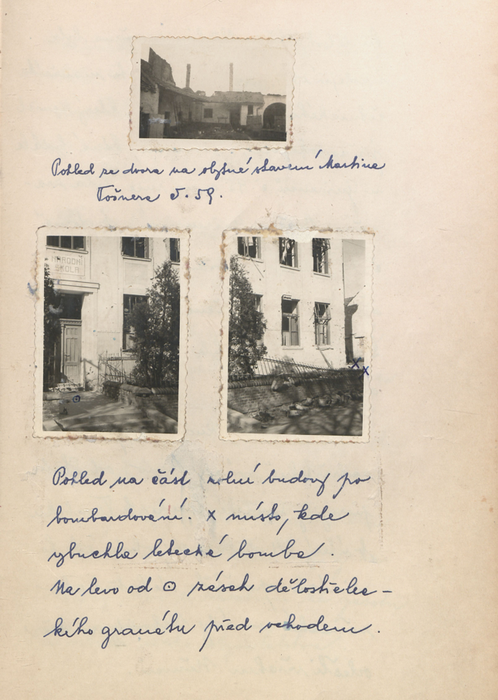 Pohled ze dvora na obytné stavení Martina
Tošnera č. 59.
NÁRODNÍ
ŠKOLA
Pohled na část školní budovy po
bombardování. x místo, kde
vybuchla letecká bomba.
Na levo od ⊙ zásah dělostřelec-
kého granátu před vchodem.